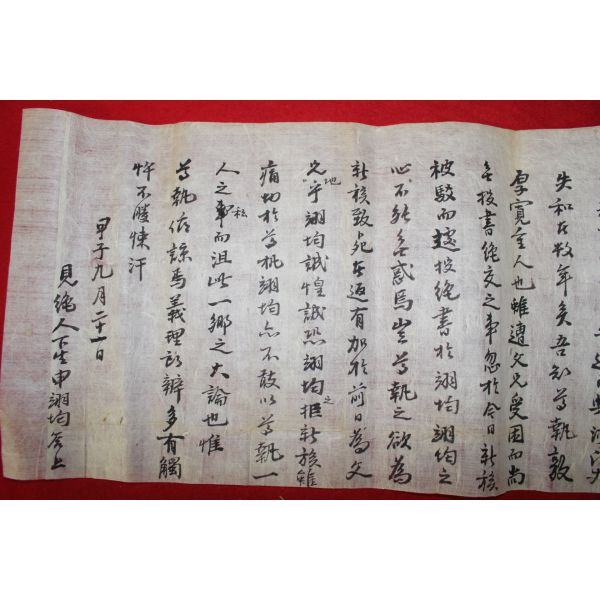 失和在數年矣吾知尊執敦
厚寬重人也雖遭文兄受困而尚
無投書絶交之事忽於今日新核
被駁而遽投絶書於翊均翊均之
心不能無惑焉豈尊執之欲爲
新核致死在返有加於前日爲父
兄地乎翊均誠惶誠恐翊均之拒新核雖
痛切於尊執翊均亦不敢以尊執一
人之私事而沮此一鄉之大論也惟
尊執俯諒焉義理所辨多有觸
忤不勝悚汗
甲子九月二十一日
見絶人下生申翊均答上